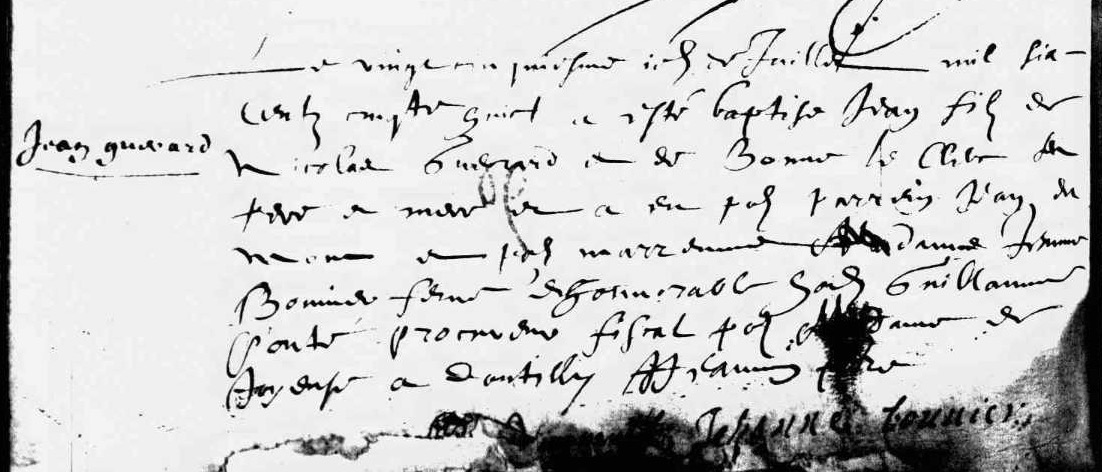 Jean guerard
Le vingt cinquiesme jo[ur] de Juillet mil six
Centz cinqte huict a esté baptise Jean filz de
Nicolas Guerard et de Bonne le Clerc ses
pere et mere et a eu po[ur] parrein Jean du
mont et po[ur] marrenne dame Jenne
Bonnier feme d'honnorable ho[mme] Guillaume
procureur fiscal po[ur] dame de
Joyeuse a dantilly
Jehanne bonnier